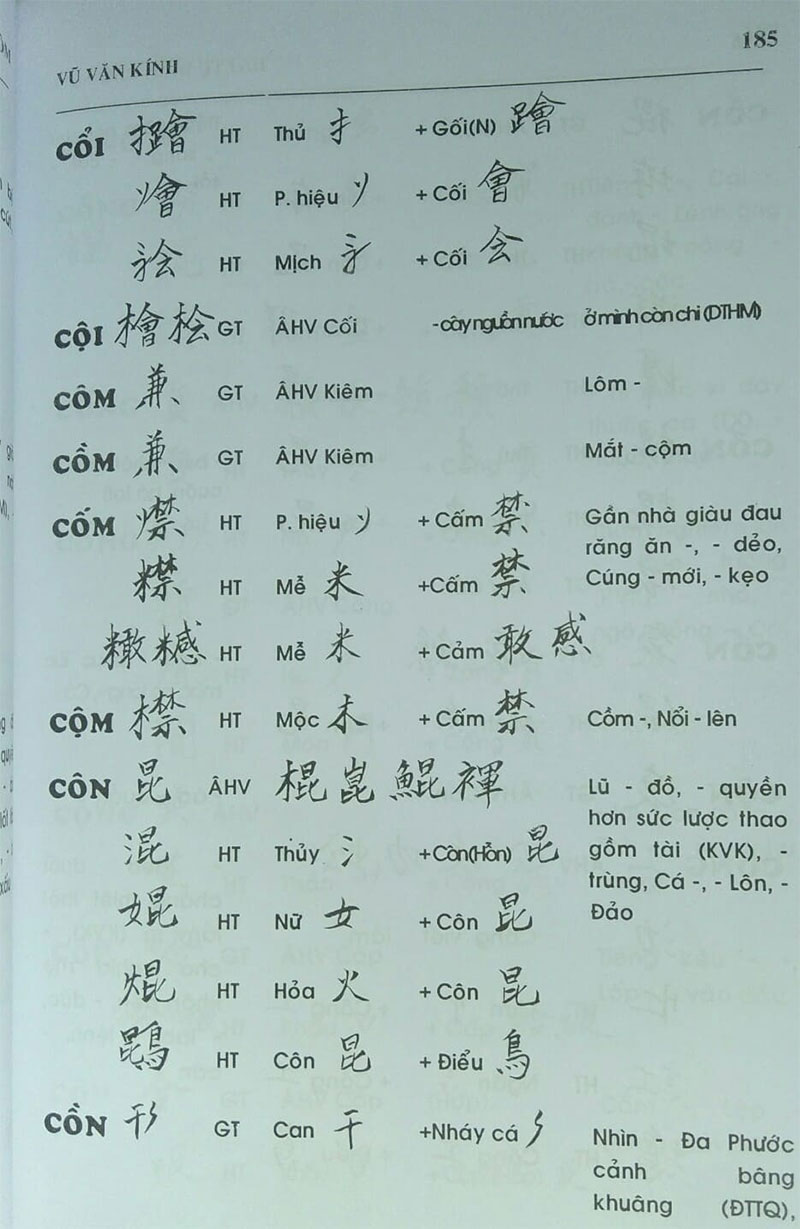 VŨ VĂN KÍNH 185
CỔI HT Thủ 扌 + Gối(N)
HT P. hiệu + Cối 會
HT Mịch 糹 + Cối 会
CỘI 檜 桧 GT ÂHV Cối -cây nguồn nước ở mình còn chi (DTHM)
CÔM 兼 GT ÂHV Kiêm Lôm -
CỒM 兼 GT ÂHV Kiêm Mắt - cộm
CỐM HT P. hiệu + Cấm 禁 Gần nhà giàu đau
răng ăn -, - dẻo,
HT Mễ 米 +Cấm 禁 Cúng - mới, - kẹo
HT Mễ 米 + Cảm 敢 感
CỘM HT Mộc 木 + Cấm 禁 Cồm -, Nổi - lên
CÔN 昆 ÂHV 棍 崑 鯤 褌 Lũ - đồ, - quyền
hơn sức lược thao
混 HT Thủy 氵 +Còn(Hỗn) 昆 gồm tài (KVK), -
trùng, Cá -, - Lôn, -
婫 HT Nữ 女 + Côn 昆 Đảo
焜 HT Hỏa 火 + Côn 昆
鵾 HT Côn 昆 + Điểu 鳥
CỒN GT Can 干 +Nháy cá Nhìn - Đa Phước
cảnh bâng
khuâng (ĐTTQ),